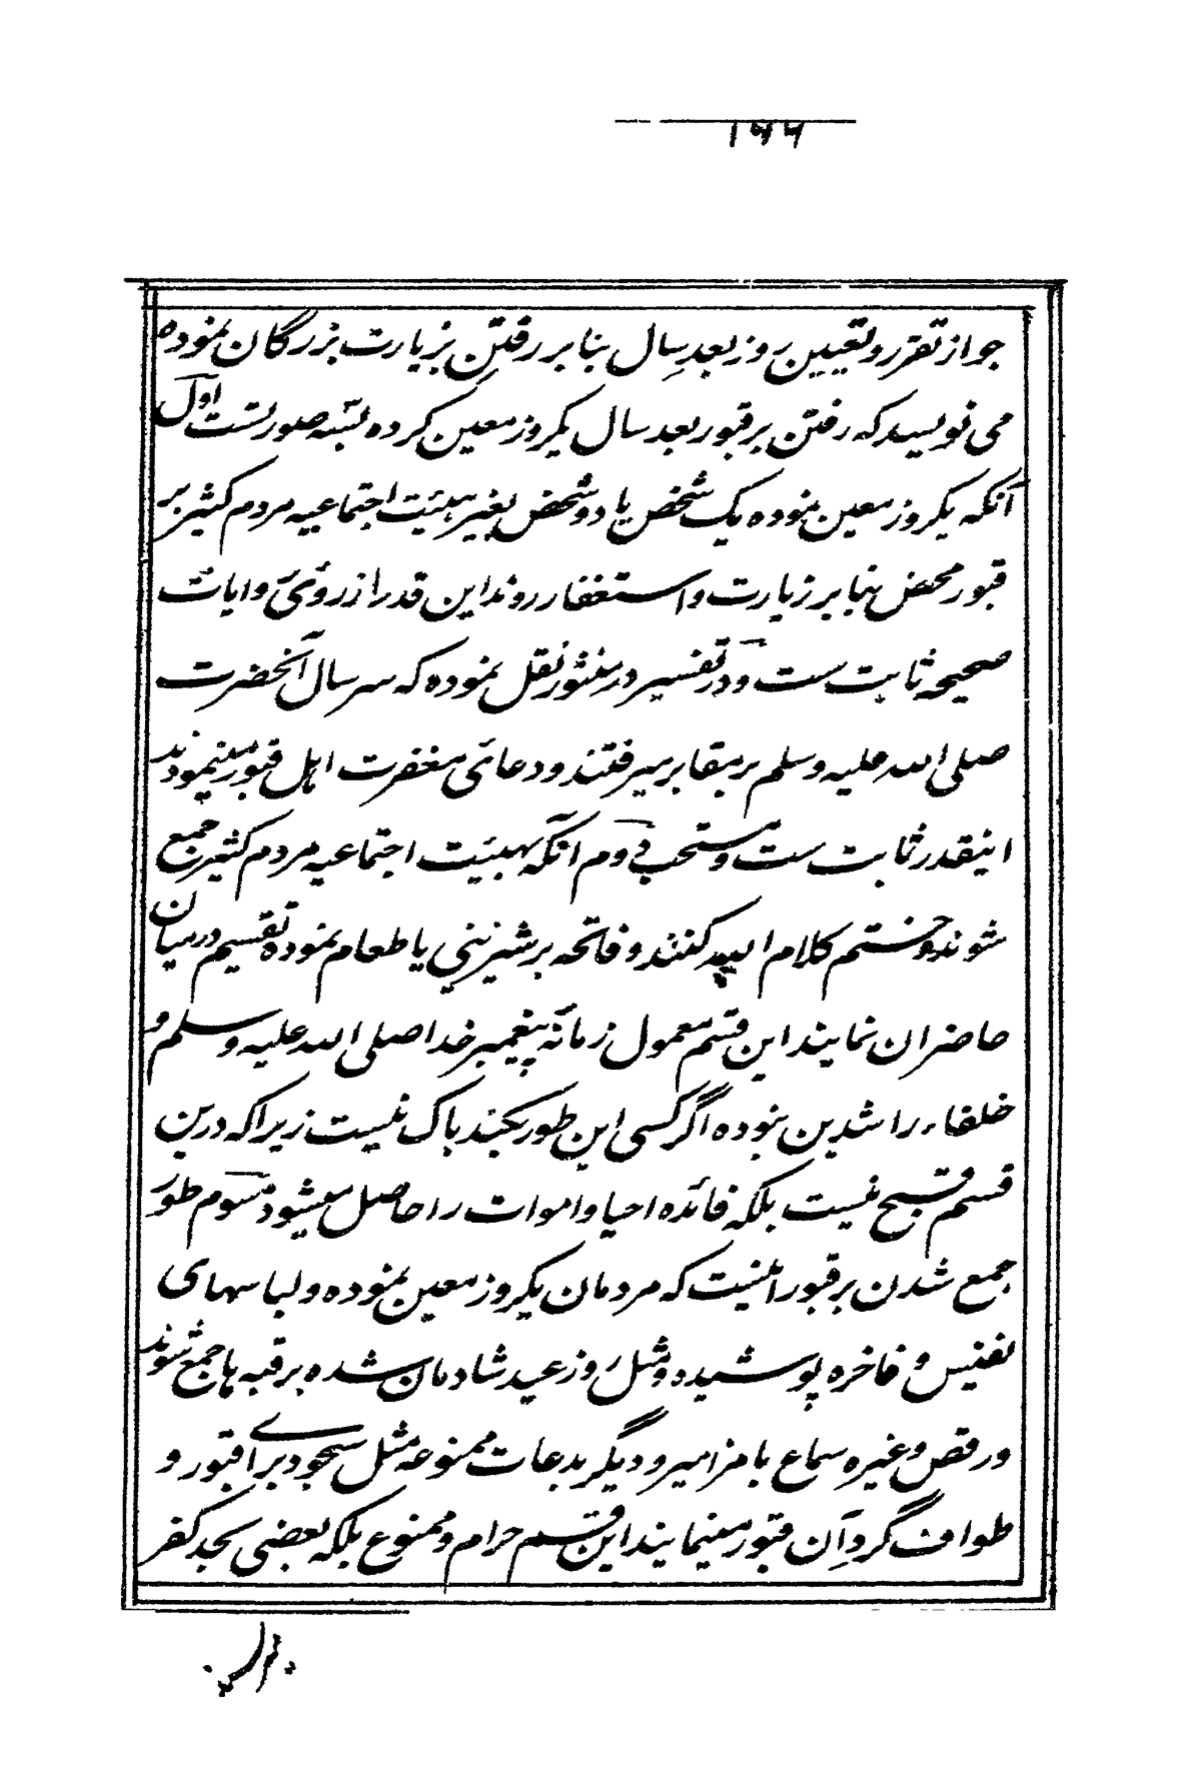 ۱۶۶
جواز تقرر و تعیین روز بعد سال بنا بر رفتن بزیارت بزرگان نموده
می نویسد که رفتن بر قبور بعد سال یکروز معین کرده بسه صورتست اول
آنکه یکروز معین نموده یک شخص یا دو شخص بغیر هیئت اجتماعیه مردم کثیر بر
قبور محض بنا بر زیارت و استغفار روند این قدر از روئی وایات
صحیحه ثابت ست و در تفسیر در منثور نقل نموده که سر سال آنحضرت
صلی الله علیه و سلم بر مقابر میرفتند و دعائی مغفرت اهل قبور مینمودند
اینقدر ثابت ست و مستحب دوم آنکه بهیئت اجتماعیه مردم کثیر جمع
شوند و ختم کلام الله کنند و فاتحه بر شیرینی یا طعام نموده تقسیم در میان
حاضران نمایند این قسم معمول زمانه پیغمبر خدا صلی الله علیه و سلم و
خلفاء راشدین نبوده اگر کسی این طور بکند باک نیست زیرا که درین
قسم قبیح نیست بلکه فائده احیا و اموات را حاصل میشود سوم طور
جمع شدن بر قبور اینست که مردمان یکروز معین نموده و لباسهای
نفیس و فاخره پوشیده و مثل روز عید شادمان شده بر قبه ها جمع شوند
و رقص و غیره سماع با مزامیر و دیگر بدعات ممنوعه مثل سجود برای قبور و
طواف گرد آن قبور مینمایند این قسم حرام و ممنوع بلکه بعضی بحد کفر